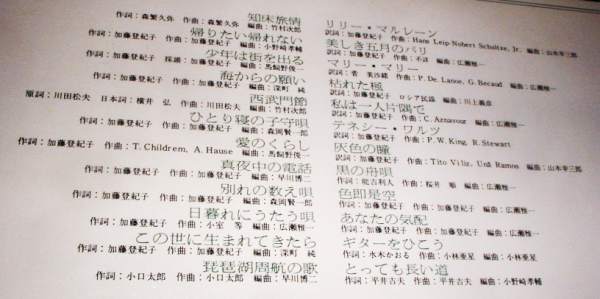 知床旅情
作詞:森繁久弥 作曲:森繁久弥 編曲:竹村次郎
帰りたい帰れない
作詞:加藤登紀子 作曲:加藤登紀子 編曲:小野崎孝輔
少年は街を出る
作詞:加藤登紀子 採譜:加藤登紀子 編曲:馬飼野俊一
海からの願い
作詞:加藤登紀子 作曲:加藤登紀子 編曲:深町 純
西武門節
原詞:川田松夫 日本詞:横井 弘 作曲:川田松夫 編曲:竹村次郎
ひとり寝の子守唄
作詞:加藤登紀子 作曲:加藤登紀子 編曲:森岡賢一郎
愛のくらし
作詞:加藤登紀子 作曲:T. Children, A. Hause 編曲:馬飼野俊一
真夜中の電話
作詞:加藤登紀子 作曲:加藤登紀子 編曲:早川博二
別れの数え唄
作詞:加藤登紀子 作曲:加藤登紀子 編曲:森岡賢一郎
日暮れにうたう唄
作詞:加藤登紀子 作曲:小室 等 編曲:広瀬雅一
この世に生まれてきたら
作詞:加藤登紀子 作曲:加藤登紀子 編曲:深町 純
琵琶湖周航の歌
作詞:小口太郎 作曲:小口太郎 編曲:早川博二
リリー・マルレーン
訳詞:加藤登紀子 作曲:Hans Leip・Nobert Schultze, Jr. 編曲:山本幸三郎
美しき五月のパリ
訳詞:加藤登紀子 作曲:不詳 編曲:広瀬雅一
マリー・マリー
訳詞:菅 美沙緒 作曲:P. De Lanoe, G. Becaud 編曲:広瀬雅一
枯れた樋
訳詞:加藤登紀子 ロシア民謡 編曲:川上義彦
私は一人片隅で
訳詞:加藤登紀子 作曲:C. Aznavour 編曲:広瀬雅一
テネシー・ワルツ
訳詞:加藤登紀子 作曲:P. W. King, R. Stewart
灰色の瞳
訳詞:加藤登紀子 作曲:Tito Viliz, Una Ramos 編曲:山本幸三郎
黒の舟唄
作詞:能吉利人 作曲:桜井 順 編曲:広瀬雅一
色即是空
作詞:加藤登紀子 作曲:加藤登紀子 編曲:広瀬雅一
あなたの気配
作詞:加藤登紀子 作曲:加藤登紀子 編曲:広瀬雅一
ギターをひこう
作詞:水木かおる 作曲:小林亜星 編曲:小林亜星
とっても長い道
作詞:平井吉夫 作曲:平井吉夫 編曲:小野崎孝輔